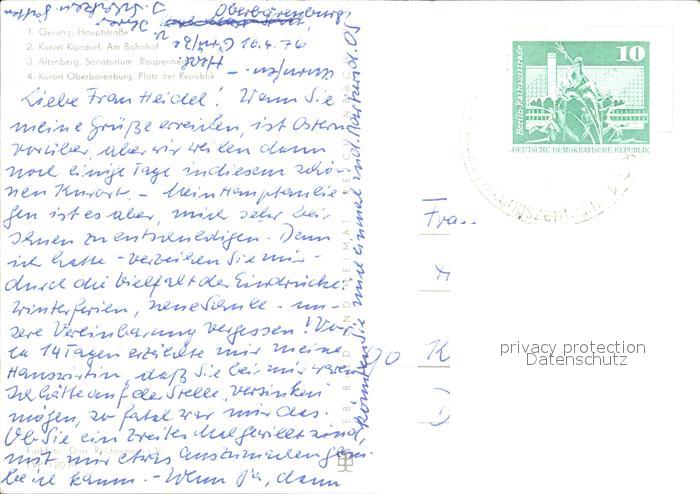 Oberbärenburg,
16.4.76
1. Geising, Hauptstraße
2. Kurort Kipsdorf, Am Bahnhof
3. Altenberg, Sanatorium „Raupennest"
4. Kurort Oberbärenburg, Platz der Republik
Liebe Frau Heidel! Wenn Sie
meine Grüße erreichen, ist Ostern
vorüber, aber wir weilen dann
noch einige Tage in diesem schö-
nen Kurort – Mein Hauptanlie-
gen ist es aber, mich sehr bei
Ihnen zu entschuldigen. Denn
ich hatte – verzeihen Sie mir –
durch die Vielfalt der Eindrücke:
Winterferien, neue Schule – un-
sere Vereinbarung vergessen! Vor
ca 14 Tagen erzählte mir meine
Hauswirtin, daß Sie bei mir waren
Ich hätte auf der Stelle versinken
mögen, so fatal war mir das.
Ob Sie ein zweites Mal gewillt sind,
mit mir etwas auszumachen, glau-
be ich kaum. – Wenn ja, dann
könnten Sie mir einmal
BILD UND HEIMAT REICHENBACH
10
Berlin-Rathausstraße
DEUTSCHE DEMOKRATISCHE REPUBLIK
Frau
privacy protection
Datenschutz